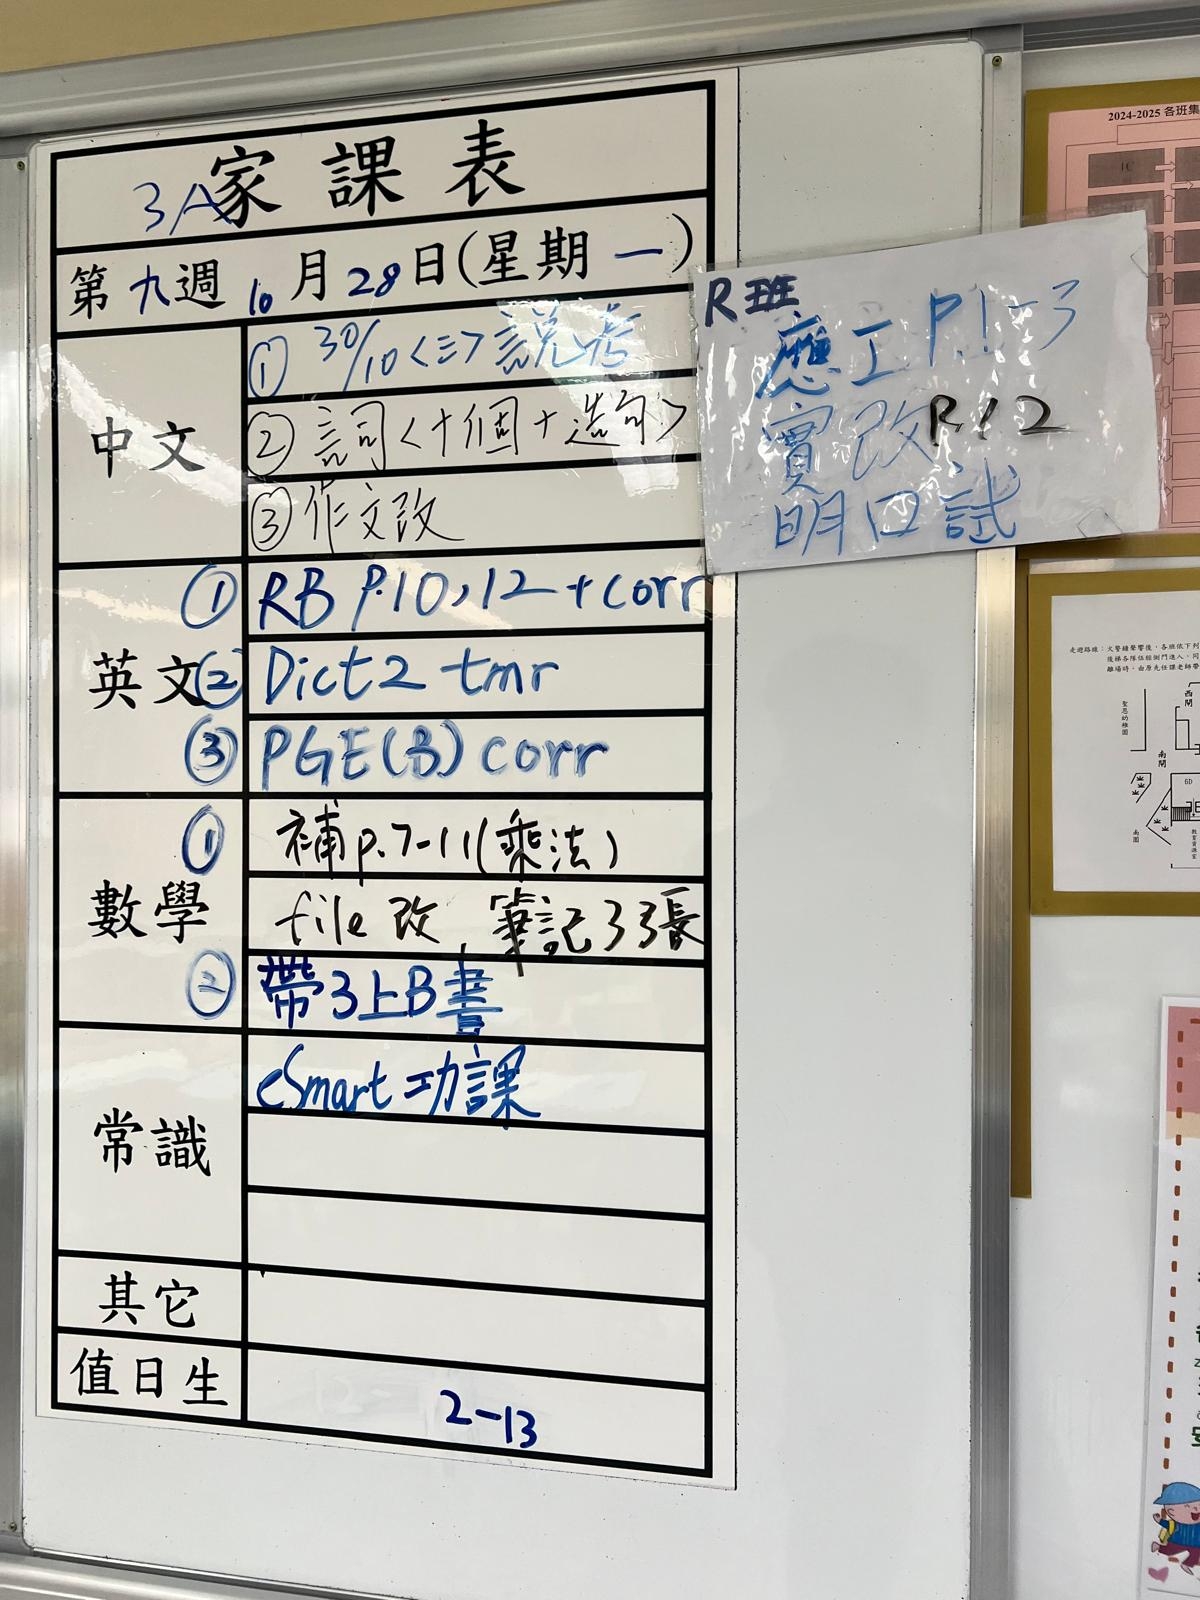 3A家課表
第九週10月28日(星期一)
中文
① 30/10<三>說考
② 詞<十個+造句>
③ 作文改
英文
① RB P.10,12 + corr
② Dict2 tmr
③ PGE(B) corr
數學
① 補p.7-11(乘法)
file改 筆記33張
② 帶3上B書
常識
eSmart功課
其它
值日生
2-13
R班
應工P.1-3
實改P.12
明口試
2024-2025 各班集
1C
走避路線：火警鐘聲響後，各班依下列
離場時，由原先任課老師帶
西閘
聖恩幼稚園
南閘
6D
南園